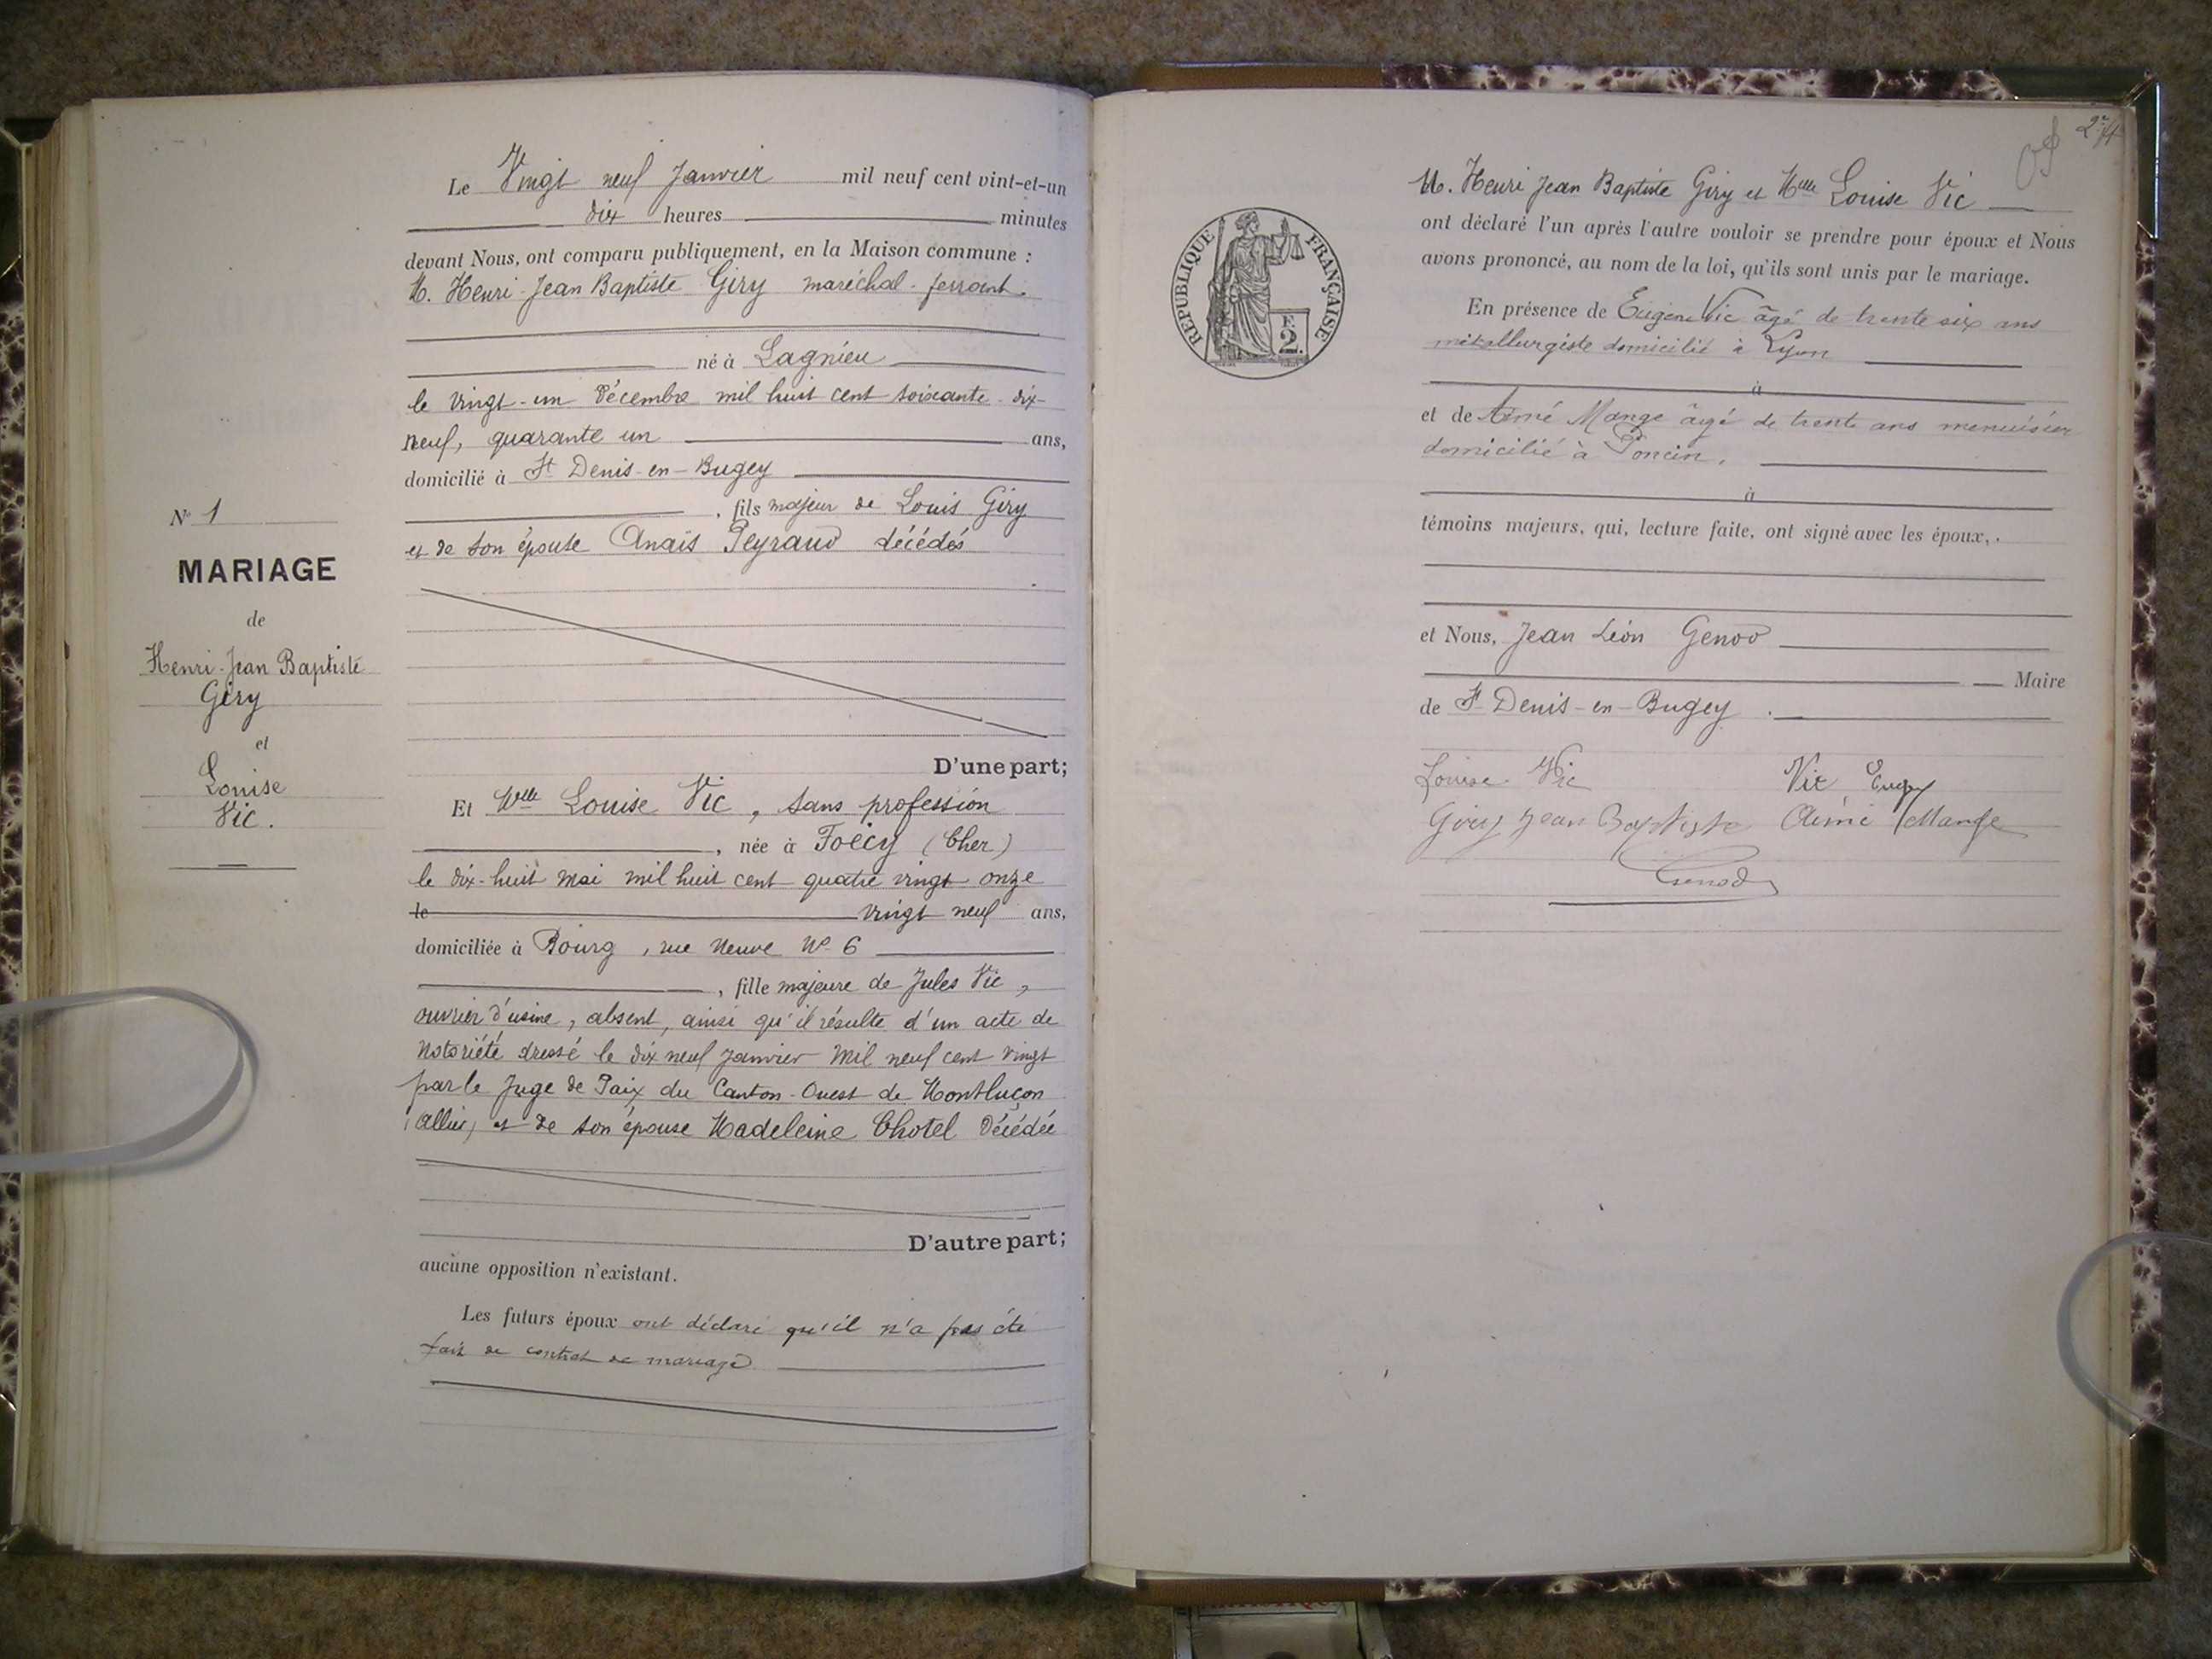 Le Vingt neuf Janvier mil neuf cent vint-et-un
dix heures minutes
devant Nous, ont comparu publiquement, en la Maison commune :
M. Henri-Jean Baptiste Giry maréchal-ferrant.
né à Lagnieu
le vingt-un Décembre mil huit cent soixante-dix-
neuf, quarante un ans,
domicilié à St Denis-en-Bugey
, fils majeur de Louis Giry
et de son épouse Anaïs Peyraud décédés
D'une part;
Et Mlle Louise Vic, sans profession
, née à Foëcy (Cher)
le dix-huit mai mil huit cent quatre vingt onze
le vingt neuf ans,
domiciliée à Bourg, rue Neuve No 6
, fille majeure de Jules Vic,
ouvrier d'usine, absent, ainsi qu'il résulte d'un acte de
notoriété dressé le dix neuf Janvier mil neuf cent vingt
par le Juge de Paix du Canton-Ouest de Montluçon
(Allier) et de son épouse Madeleine Chotel décédée
D'autre part;
aucune opposition n'existant.
Les futurs époux ont déclaré qu'il n'a pas été
fait de contrat de mariage
No 1
MARIAGE
de
Henri-Jean Baptiste
Giry
et
Louise
Vic.
M. Henri Jean Baptiste Giry et Mlle Louise Vic
ont déclaré l'un après l'autre vouloir se prendre pour époux et Nous
avons prononcé, au nom de la loi, qu'ils sont unis par le mariage.
En présence de Eugène Vic âgé de trente six ans
métallurgiste domicilié à Lyon
à
et de Aimé Mange âgé de trente ans menuisier
domicilié à Poncin.
à
témoins majeurs, qui, lecture faite, ont signé avec les époux,
et Nous, Jean Léon Genod
Maire
de St Denis-en-Bugey.
Louise Vic Vic Eug
Giry Jean Baptiste Aimé Mange
Genod
RÉPUBLIQUE FRANÇAISE
2